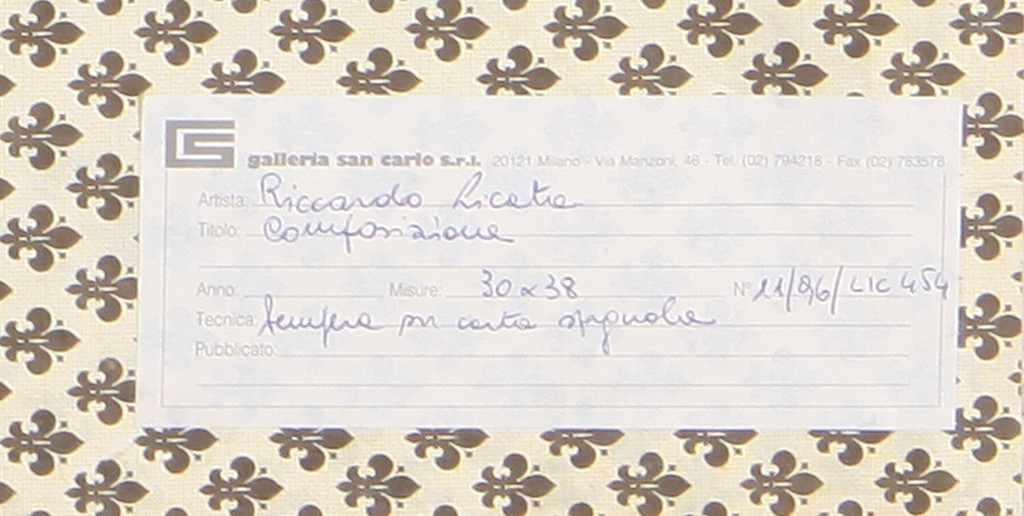 GS galleria san carlo s.r.l. 20121 Milano - Via Manzoni, 46 - Tel. (02) 794218 - Fax (02) 783578
Artista: Riccardo Licata
Titolo: Composizione
Anno: Misure: 30 x 38 N° 11/96/LIC 454
Tecnica: tempera su carta spagnola
Pubblicato: